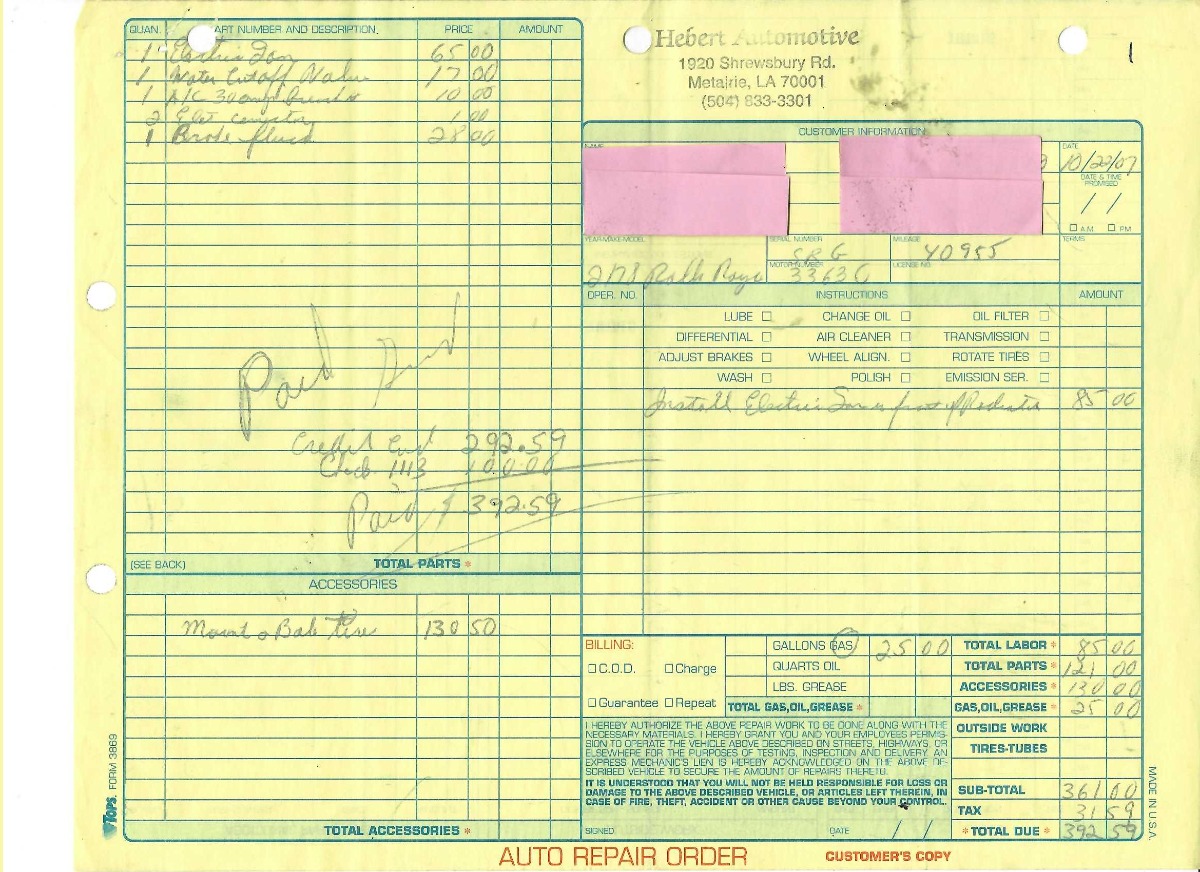 QUAN. PART NUMBER AND DESCRIPTION. PRICE AMOUNT
1 Electric Fan 65 00
1 Water Cutoff Valve 17 00
1 A/C 30 amp 10 00
2 1 00
1 Brake fluid 28 00
Paid
Credit Card 292.59
Check 1113 100.00
Paid $ 392.59
(SEE BACK) TOTAL PARTS *
ACCESSORIES
Mount & Bal Tires 130 50
TOTAL ACCESSORIES *
TOPS. FORM 3869
Hebert Automotive
1920 Shrewsbury Rd.
Metairie, LA 70001
(504) 833-3301
1
CUSTOMER INFORMATION
NAME
DATE
10/22/07
DATE & TIME PROMISED
/ /
☐ A.M. ☐ PM
YEAR-MAKE-MODEL SERIAL NUMBER MILEAGE TERMS:
SRG 40955
MOTOR NUMBER LICENSE NO.
Rolls Royce 33630
OPER. NO. INSTRUCTIONS AMOUNT
LUBE ☐ CHANGE OIL ☐ OIL FILTER ☐
DIFFERENTIAL ☐ AIR CLEANER ☐ TRANSMISSION ☐
ADJUST BRAKES ☐ WHEEL ALIGN. ☐ ROTATE TIRES ☐
WASH ☐ POLISH ☐ EMISSION SER. ☐
Install Electric Fan front of Radiator 85 00
BILLING:
☐ C.O.D. ☐ Charge
☐ Guarantee ☐ Repeat
GALLONS GAS 25 00
QUARTS OIL
LBS. GREASE
TOTAL GAS,OIL,GREASE *
TOTAL LABOR * 85 00
TOTAL PARTS * 121 00
ACCESSORIES * 130 00
GAS,OIL,GREASE * 25 00
OUTSIDE WORK
TIRES-TUBES
SUB-TOTAL 361 00
TAX 31 59
*TOTAL DUE * 392 59
I HEREBY AUTHORIZE THE ABOVE REPAIR WORK TO BE DONE ALONG WITH THE
NECESSARY MATERIALS. I HEREBY GRANT YOU AND YOUR EMPLOYEES PERMIS-
SION TO OPERATE THE VEHICLE ABOVE DESCRIBED ON STREETS, HIGHWAYS, OR
ELSEWHERE FOR THE PURPOSES OF TESTING, INSPECTION AND DELIVERY. AN
EXPRESS MECHANIC'S LIEN IS HEREBY ACKNOWLEDGED ON THE ABOVE DE-
SCRIBED VEHICLE TO SECURE THE AMOUNT OF REPAIRS THERETO.
IT IS UNDERSTOOD THAT YOU WILL NOT BE HELD RESPONSIBLE FOR LOSS OR
DAMAGE TO THE ABOVE DESCRIBED VEHICLE, OR ARTICLES LEFT THEREIN, IN
CASE OF FIRE, THEFT, ACCIDENT OR OTHER CAUSE BEYOND YOUR CONTROL.
SIGNED DATE / /
MADE IN U.S.A.
AUTO REPAIR ORDER CUSTOMER'S COPY